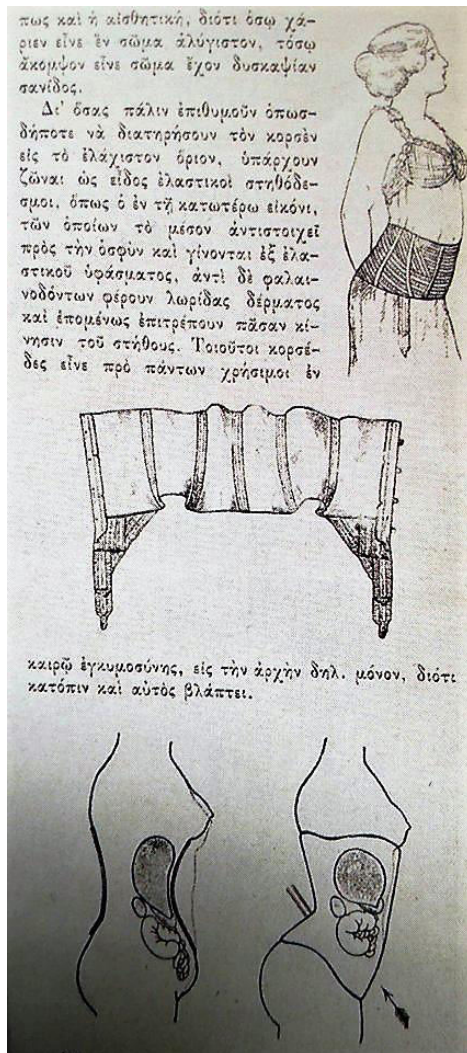 πως καὶ ἡ αἰσθητική, διότι ὅσῳ χά-
ριεν εἶνε ἓν σῶμα λύγιστον, τόσῳ
ἄκομψον εἶνε σῶμα ἔχον δυσκαψίαν
σανίδος.
Δι' ὅσας πάλιν ἐπιθυμοῦν ὁπωσ-
δήποτε νὰ διατηρήσουν τὸν κορσὲν
εἰς τὸ ἐλάχιστον ὅριον, ὑπάρχουν
ζῶναι ὡς εἶδος ἐλαστικοὶ στηθόδε-
σμοι, ὅπως ὁ ἐν τῇ κατωτέρω εἰκόνι,
τῶν ὁποίων τὸ μέσον ἀντιστοιχεῖ
πρὸς τὴν ὀσφὺν καὶ γίνονται ἐξ ἐλα-
στικοῦ ὑφάσματος, ἀντὶ δὲ φαλαι-
νοδόντων φέρουν λωρίδας δέρματος
καὶ ἑπομένως ἐπιτρέπουν πᾶσαν κί-
νησιν τοῦ στήθους. Τοιοῦτοι κορσέ-
δες εἶνε πρὸ πάντων χρήσιμοι ἐν
καιρῷ ἐγκυμοσύνης, εἰς τὴν ἀρχὴν δηλ. μόνον, διότι
κατόπιν καὶ αὐτὸς βλάπτει.